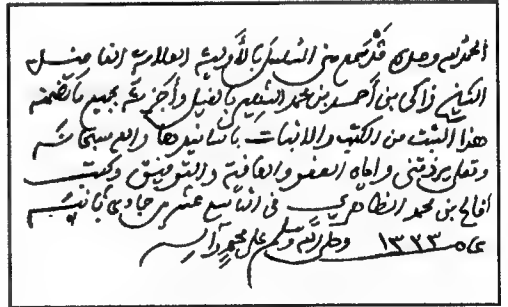 الحمد لله وحده قد سمع مني المسلسل بالأولية العلامة الفاضل
الشيخ زاكي بن أحمد بن محمد الشهير بالفيل وأجزته بجميع ما تضمنه
هذا الثبت من الكتب والاثبات بأسانيدها والله سبحانه
وتعالى يرزقني واياه العفو والعافية والتوفيق وكتب
فالح بن محمد الظاهري في التاسع عشر من جمادى ثانية
عام ١٣٢٣ وصلى الله وسلم على محمد وآله